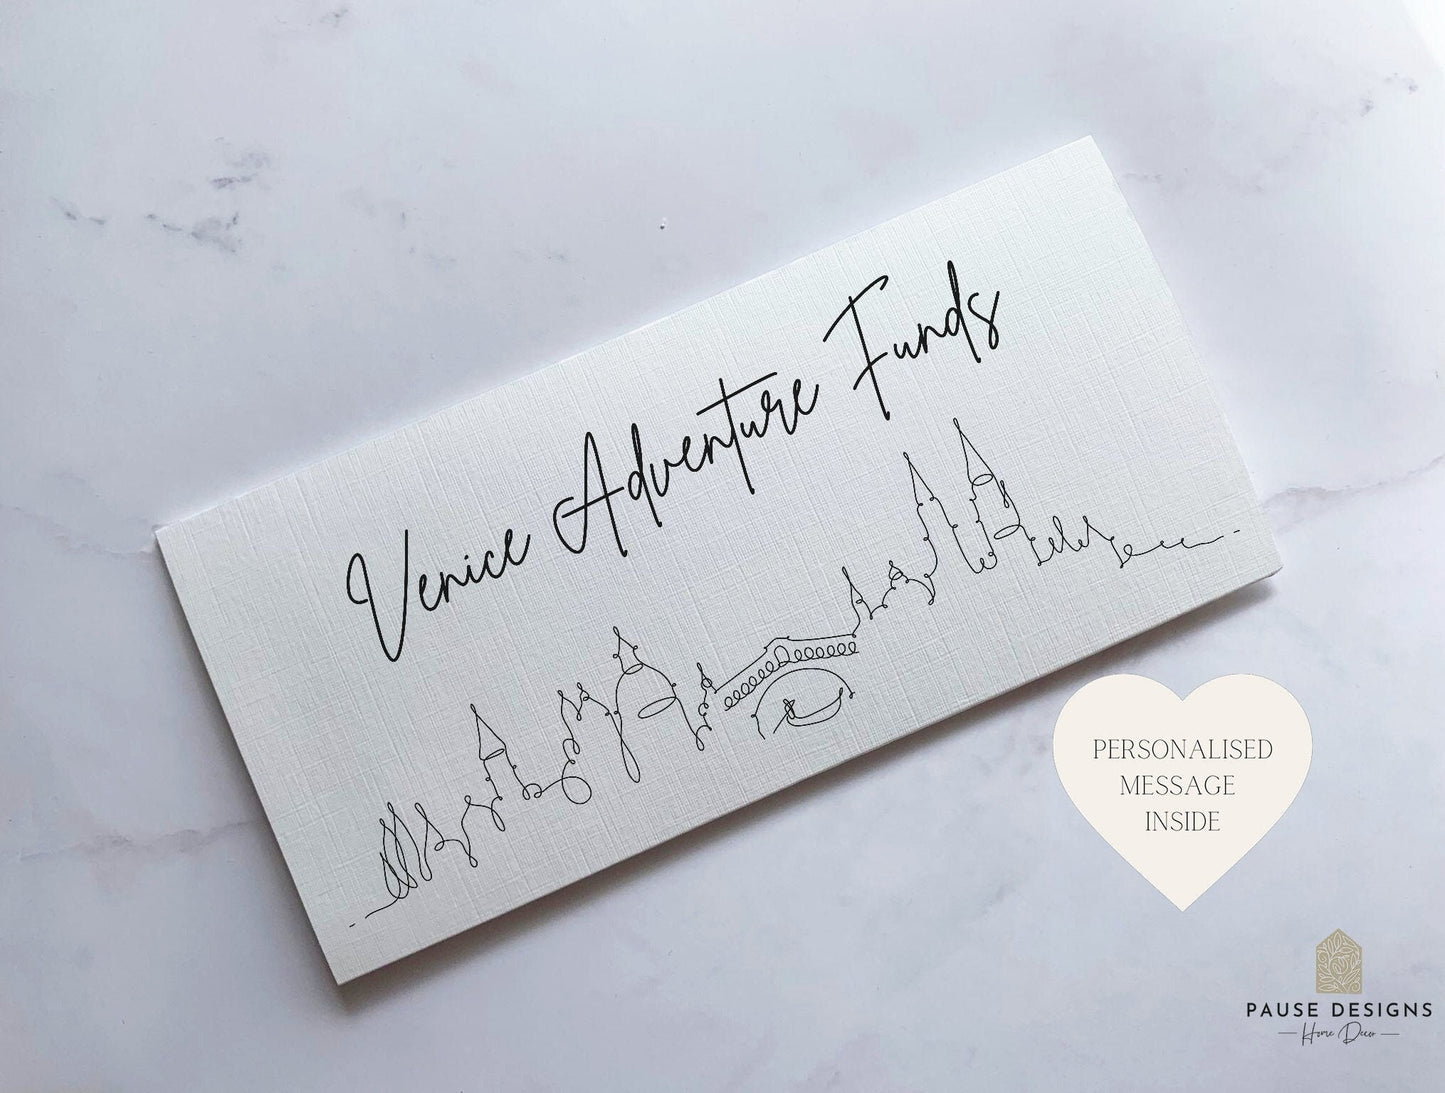 Venice Adventure Funds
PERSONALISED
MESSAGE
INSIDE
PAUSE DESIGNS
Home Decor